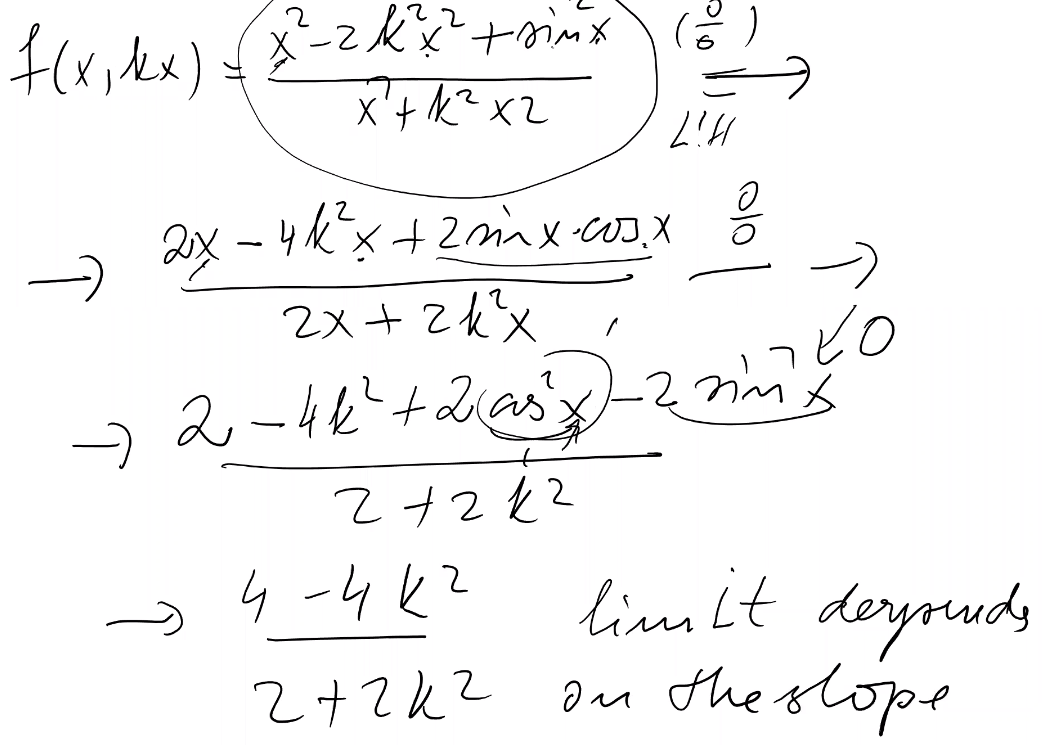 f(x, kx) = (x² - 2k²x² + sin²x) / (x² + k²x2) (0/0) =→ L'H
→ (2x - 4k²x + 2 sin x · cos x) / (2x + 2k²x) 0/0 →
→ (2 - 4k² + 2 cos²x - 2 sin²x) / (2 + 2k²) ↙ 0
→ (4 - 4k²) / (2 + 2k²) limit depends
on the slope